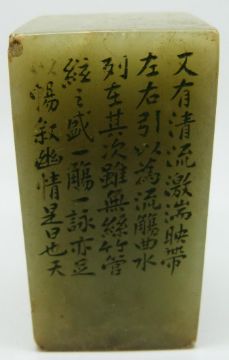 又有清流激湍映帶
左右引以為流觴曲水
列在其次雖無絲竹管
絃之盛一觴一詠亦足
以暢敘幽情是日也天